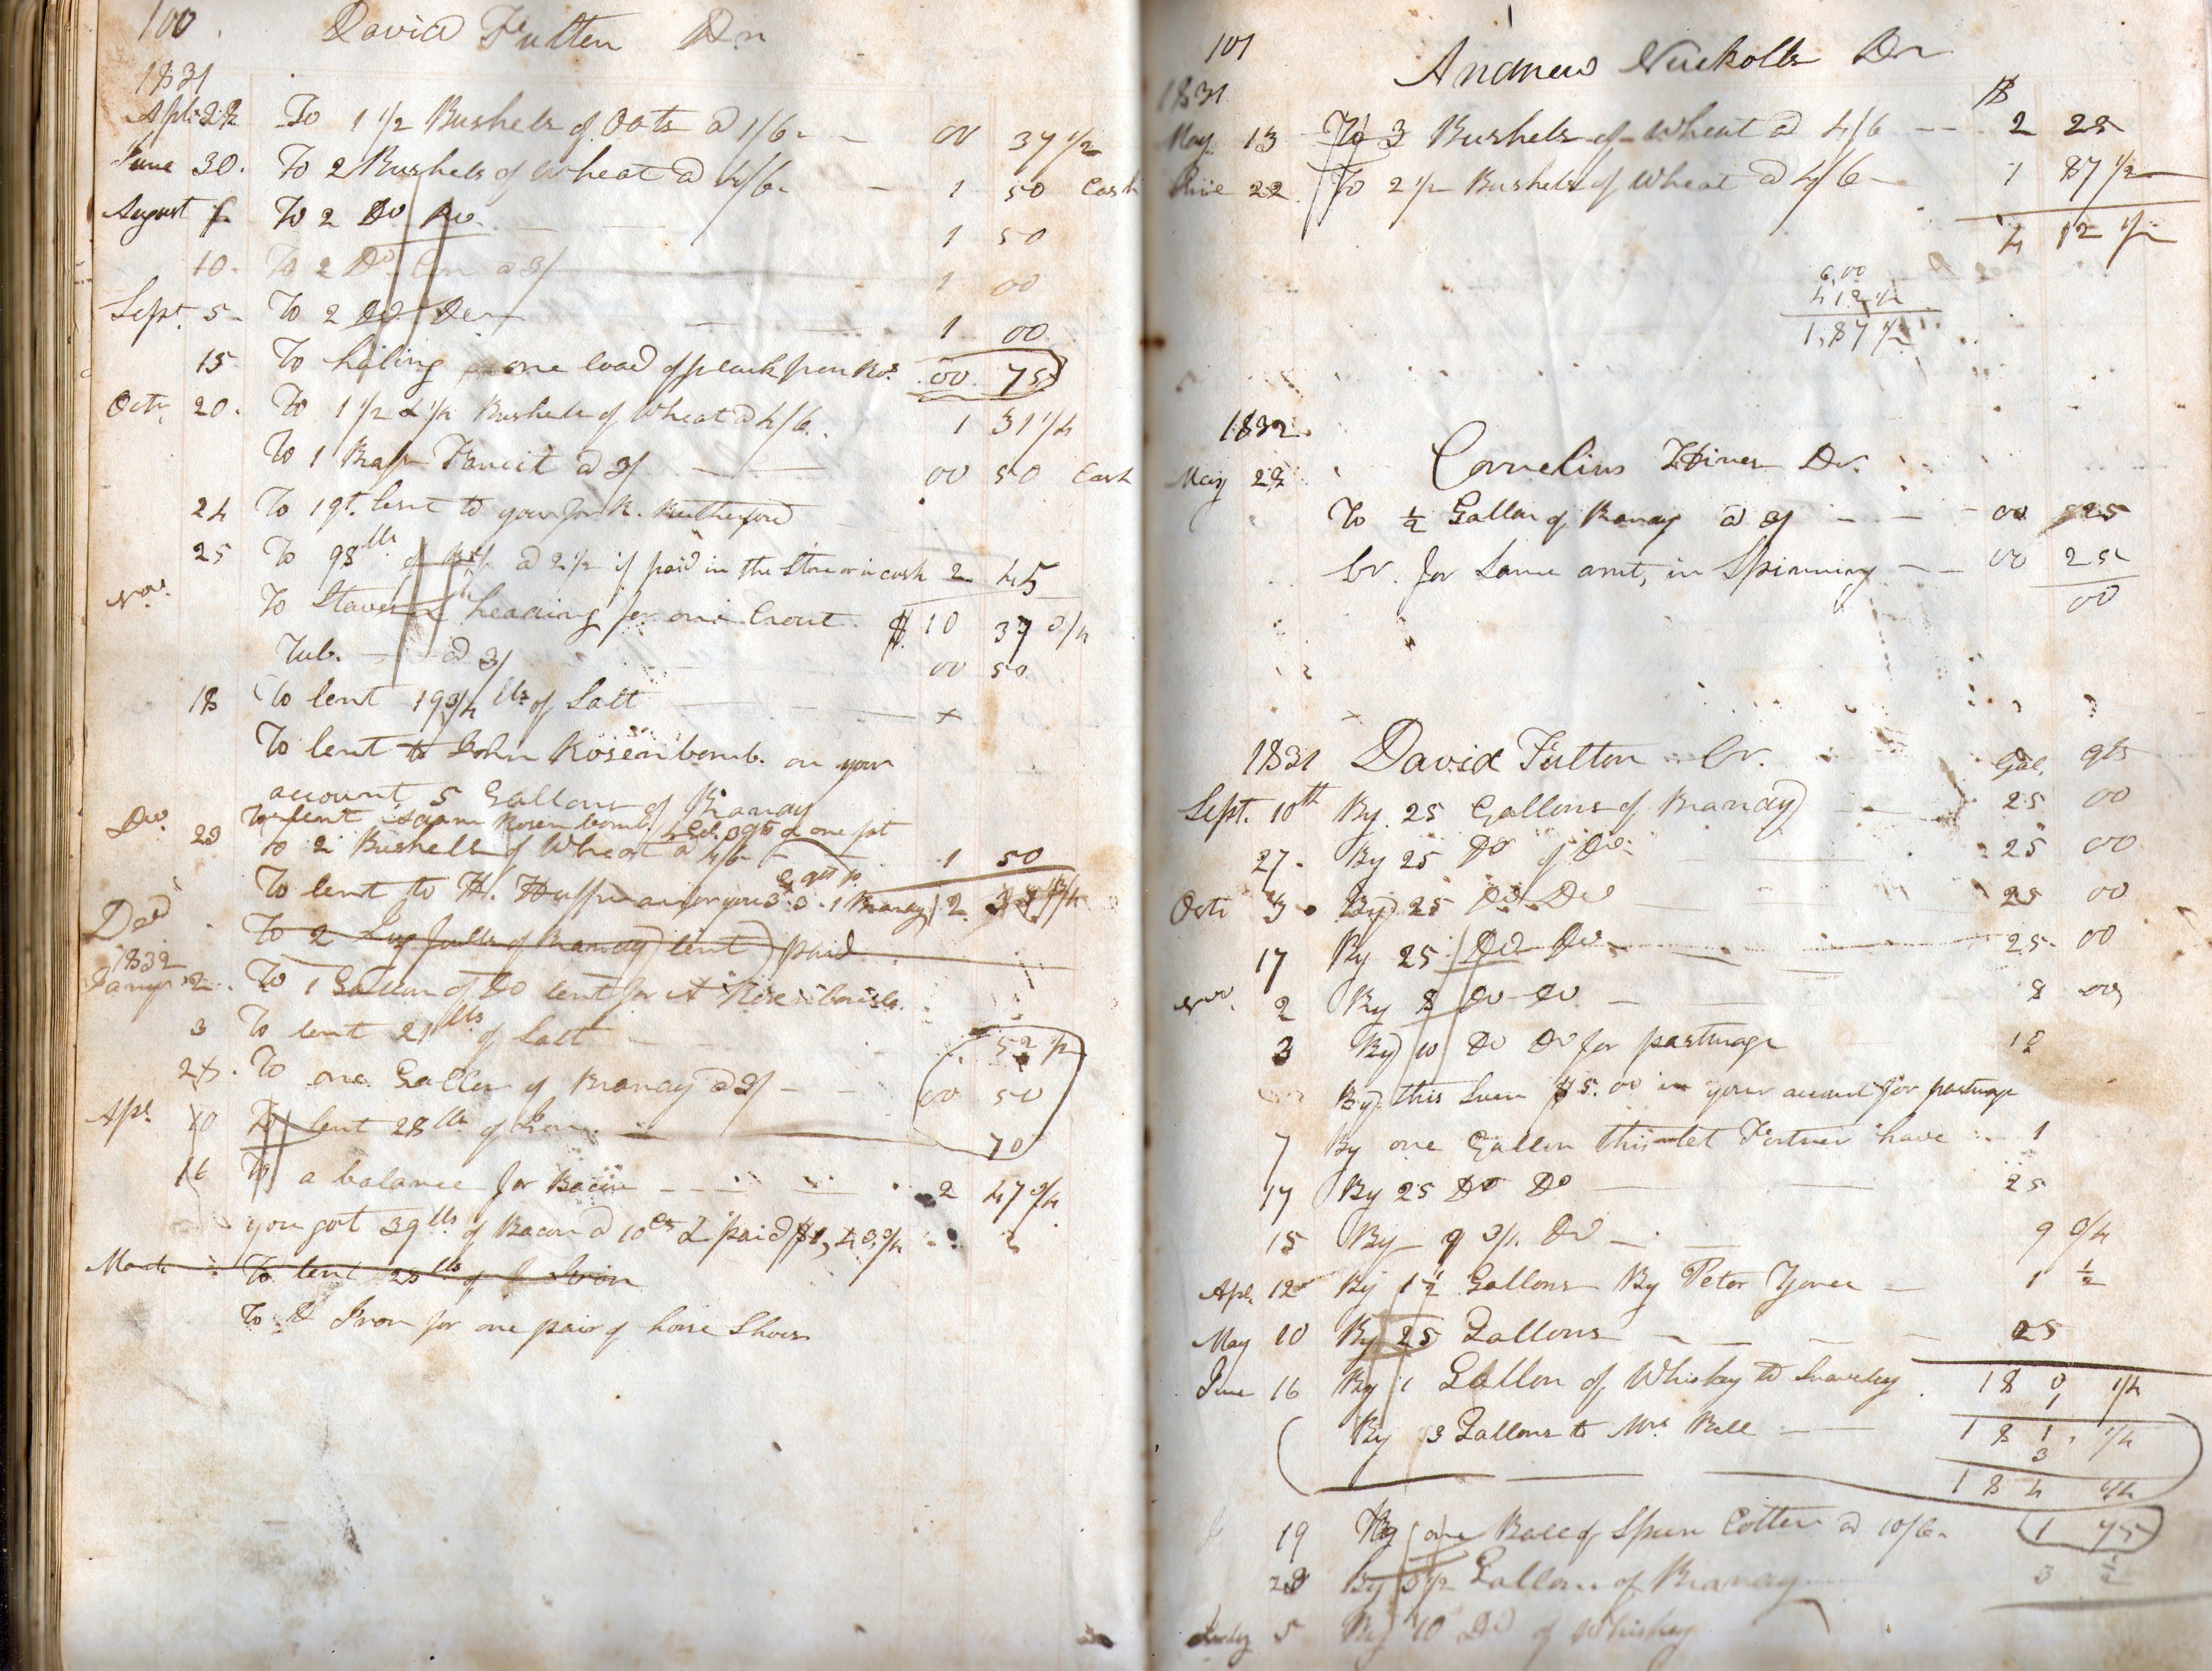 100
David Fulton Dr
1831
Apl. 22 To 1 1/2 Bushels of Oats @ 1/6 00 37 1/2
June 30. To 2 Bushels of Wheat @ 4/6 1 50 Cash
August To 2 Do Do 1 50
10. To 2 Do Corn @ 3/ 1 00
Sept. 5 To 2 Do Do 1 00
15 To haling one load of plank from 00 75
Oct. 20. To 1 1/2 & 1/4 Bushels of Wheat @ 4/6. 1 31 1/4
To 1 Brass Faucit @ 3/ 00 50 Cash
24 To 1 qt. lent to you for R. Rutherford
25 To 98 lbs of Beef @ 2 1/2 if paid in the Store or in cash 2 45
Nov. To Staves & heading for one Crout $10 37 3/4
Tub. @ 3/ 00 50
18 To lent 19 3/4 lbs of Salt
To lent to John Rosenbomb. on your
account 5 Gallons of Brandy
To lent Rosenbomb. 4 Gal. 3 qts & one pt
Dec. 23 To 2 Bushells of Wheat @ 4/6 1 50
To lent to H. Huffman for you 3. 3. 1 Brandy 12
Decr To 2 Jug fulls of Brandy lent paid
1832
Jany 2. To 1 Gallon of Do lent for A
3 To lent 21 lbs of Salt 52 1/2
24. To one Gallon of Brandy @ 3/ 00 50
Apl. 10 To lent 28 lbs of Iron. 70
16 To a balance for Bacon 2 47 3/4
you got 39 lbs of Bacon @ 10 cts & paid
March To lent 28 lbs of Iron
To Iron for one pair of horse Shoes
101
Andrew Nuckolls Dr
1831 $
May 13 To 3 Bushels of Wheat @ 4/6 2 25
June 22 To 2 1/2 Bushels of Wheat @ 4/6 1 87 1/2
4 12 1/2
6,00
4,12 1/2
1,87 1/2
1832
Cornelius Hines Dr.
May 22
To 1/2 Gallon of Brandy @ 3/ 00 25
Cr. for Same amt, in Spinning 00 25
00
1831 David Fulton Cr. Gal. qts
Sept. 10th By 25 Gallons of Brandy 25 00
27. By 25 Do of Do. 25 00
Oct. 3 By 25 Do Do 25 00
17 By 25 Do Do 25 00
Nov. 2 By 8 Do Do 8 00
3 By 10 Do Do for pasturage
By this Sum $5.00 in your account for pasturage
7 By one Gallon this let Fortner have 1
17 By 25 Do Do 25
15 By 9 3/4 Do 9 3/4
Apl. 12 By 1 1/2 Gallons By Peter 1 1/2
May 10 By 25 Gallons 25
June 16 By 1 Gallon of Whiskey to Snavley 180 1/4
1
By 3 Gallons to Mrs Bell 181 1/4
3
184 1/4
19 By one Bale of Spun Cotten @ 10/6 1 75
23 By 3 1/2 Gallons of Brandy 3 1/2
July 5 By 10 Do of Whiskey